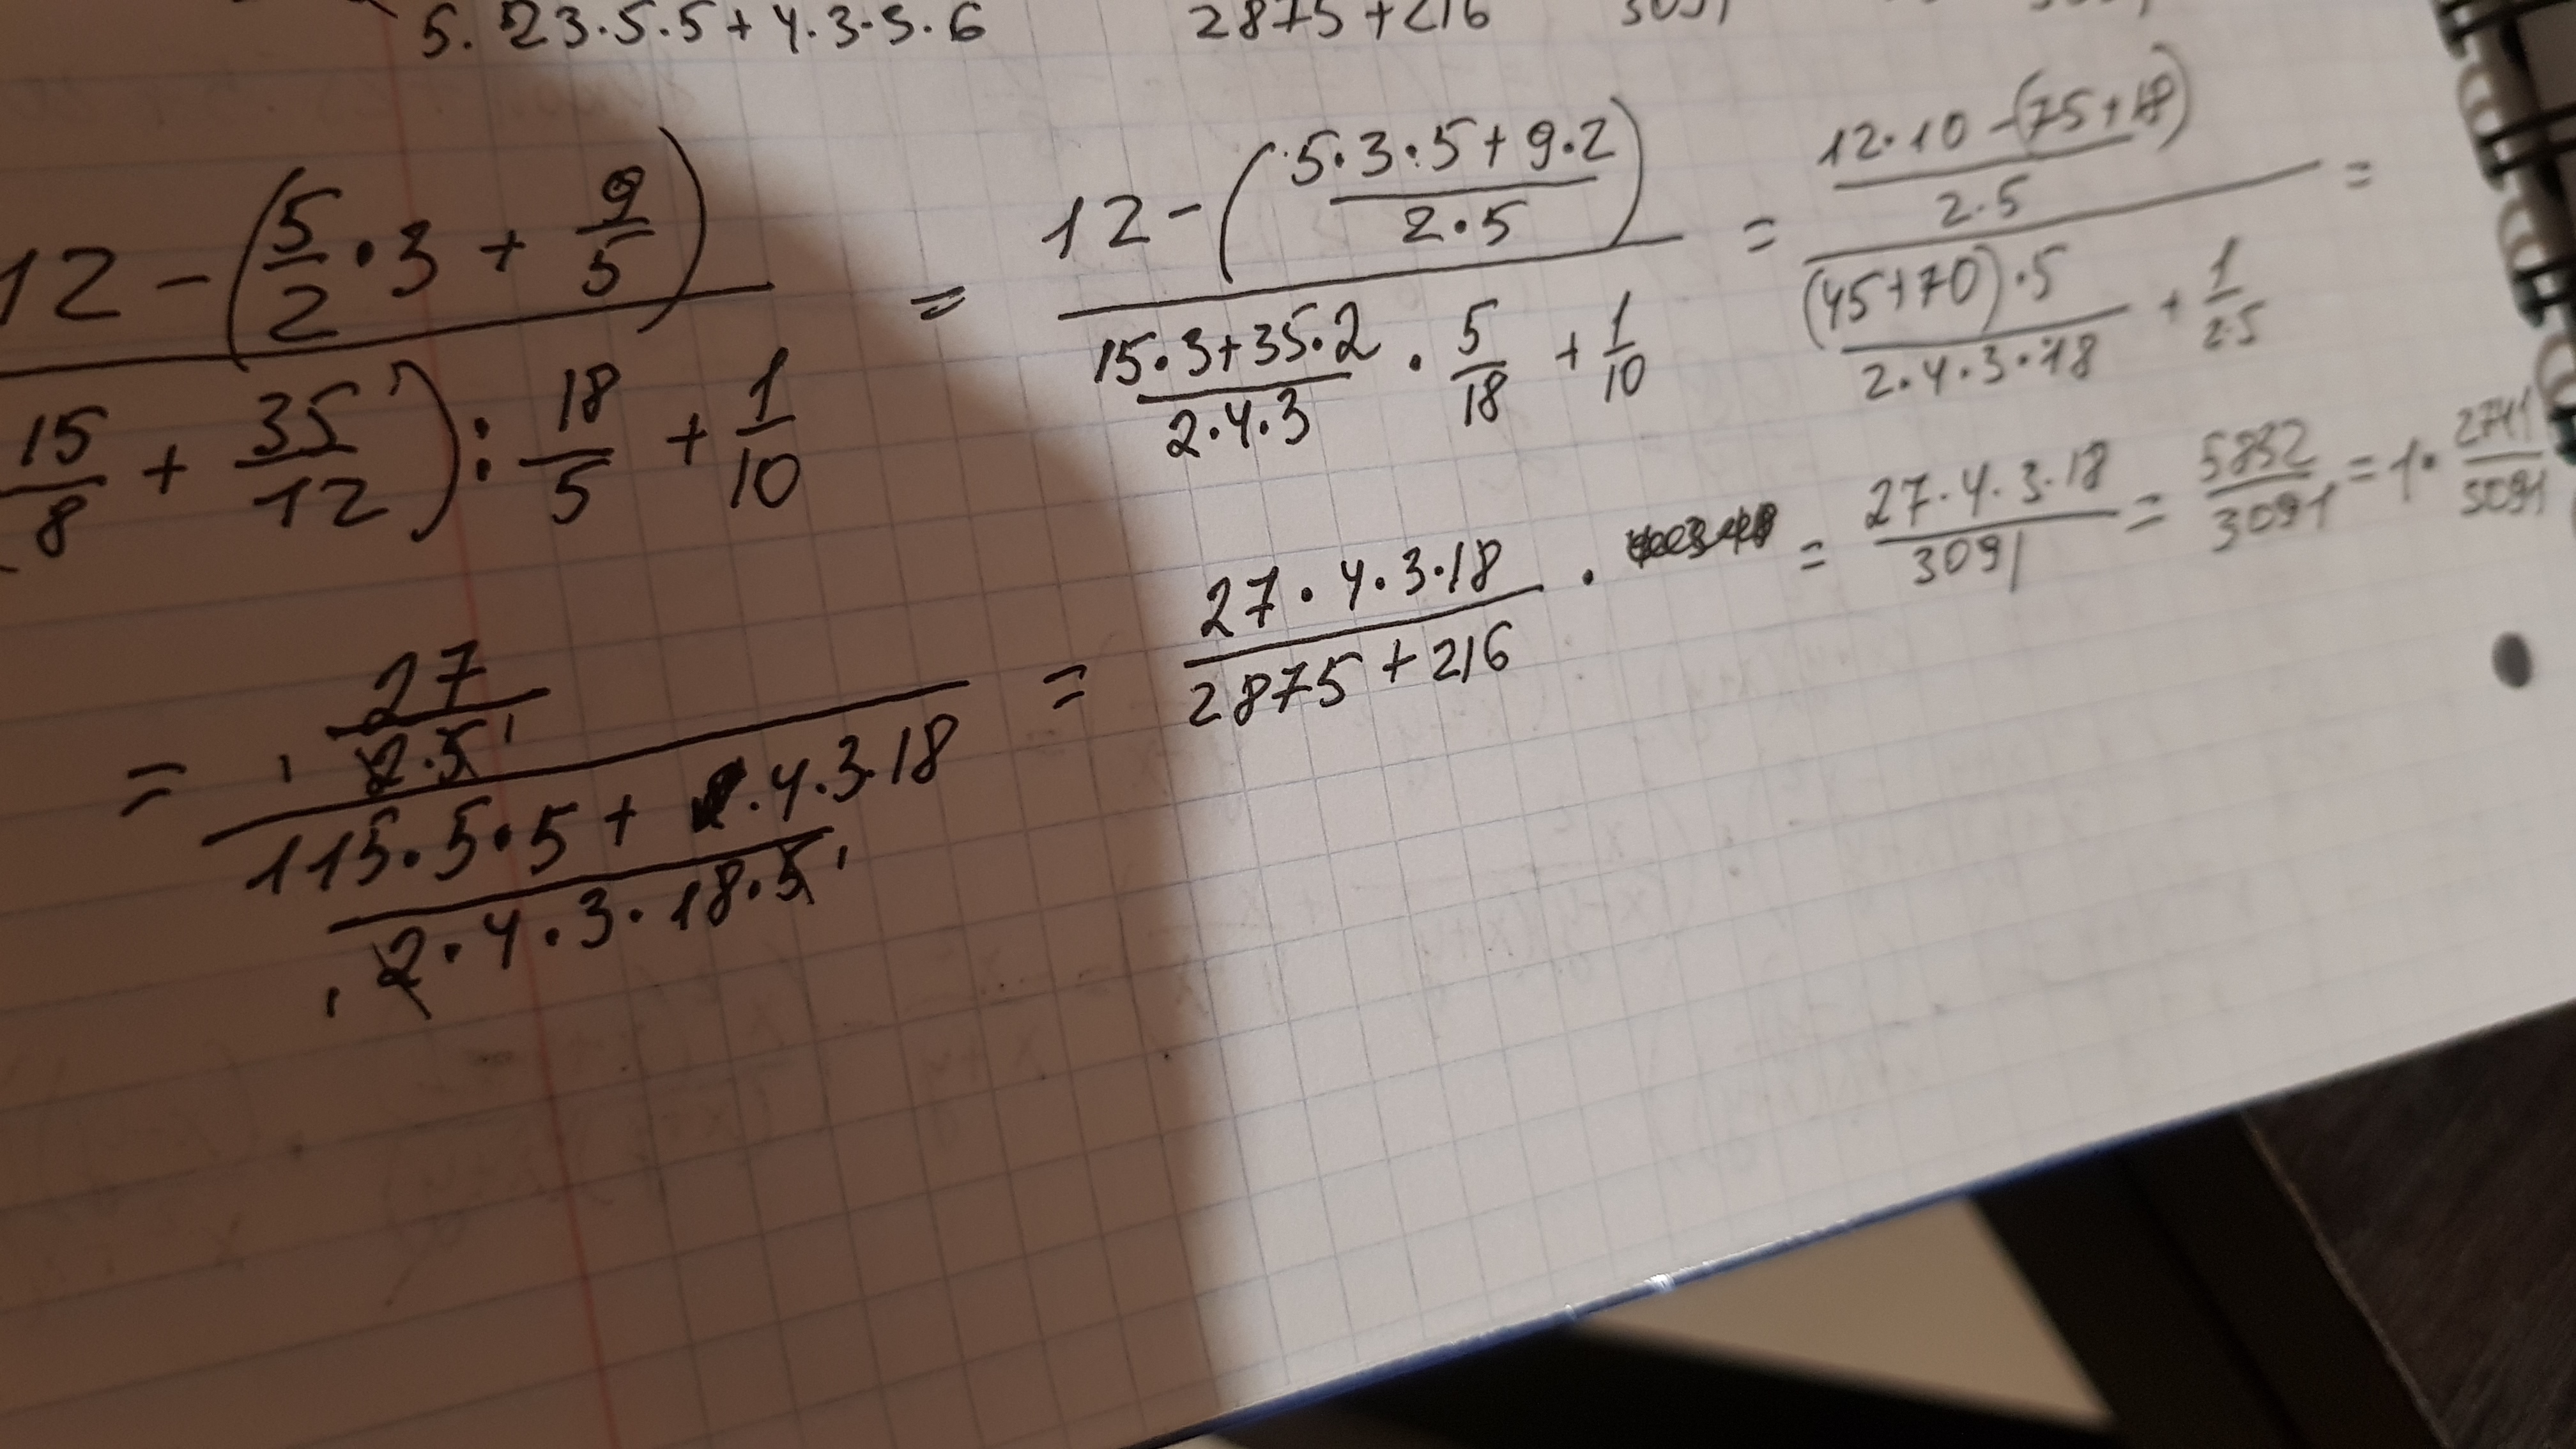 5·23·5·5+4·3·3·6 2875+216 3091
12-(5/2·3+9/5) / (15/8+35/12):18/5+1/10 = 12-((5·3·5+9·2)/(2·5)) / (15·3+35·2)/(2·4·3)·5/18+1/10 = (12·10-(75+18))/(2·5) / ((45+70)·5)/(2·4·3·18)+1/(2·5) =
= 27/(2·5) / (115·5·5+·4·3·18)/(2·4·3·18·5) = (27·4·3·18)/(2875+216)· = (27·4·3·18)/3091 = 5832/3091 = 1·2741/3091